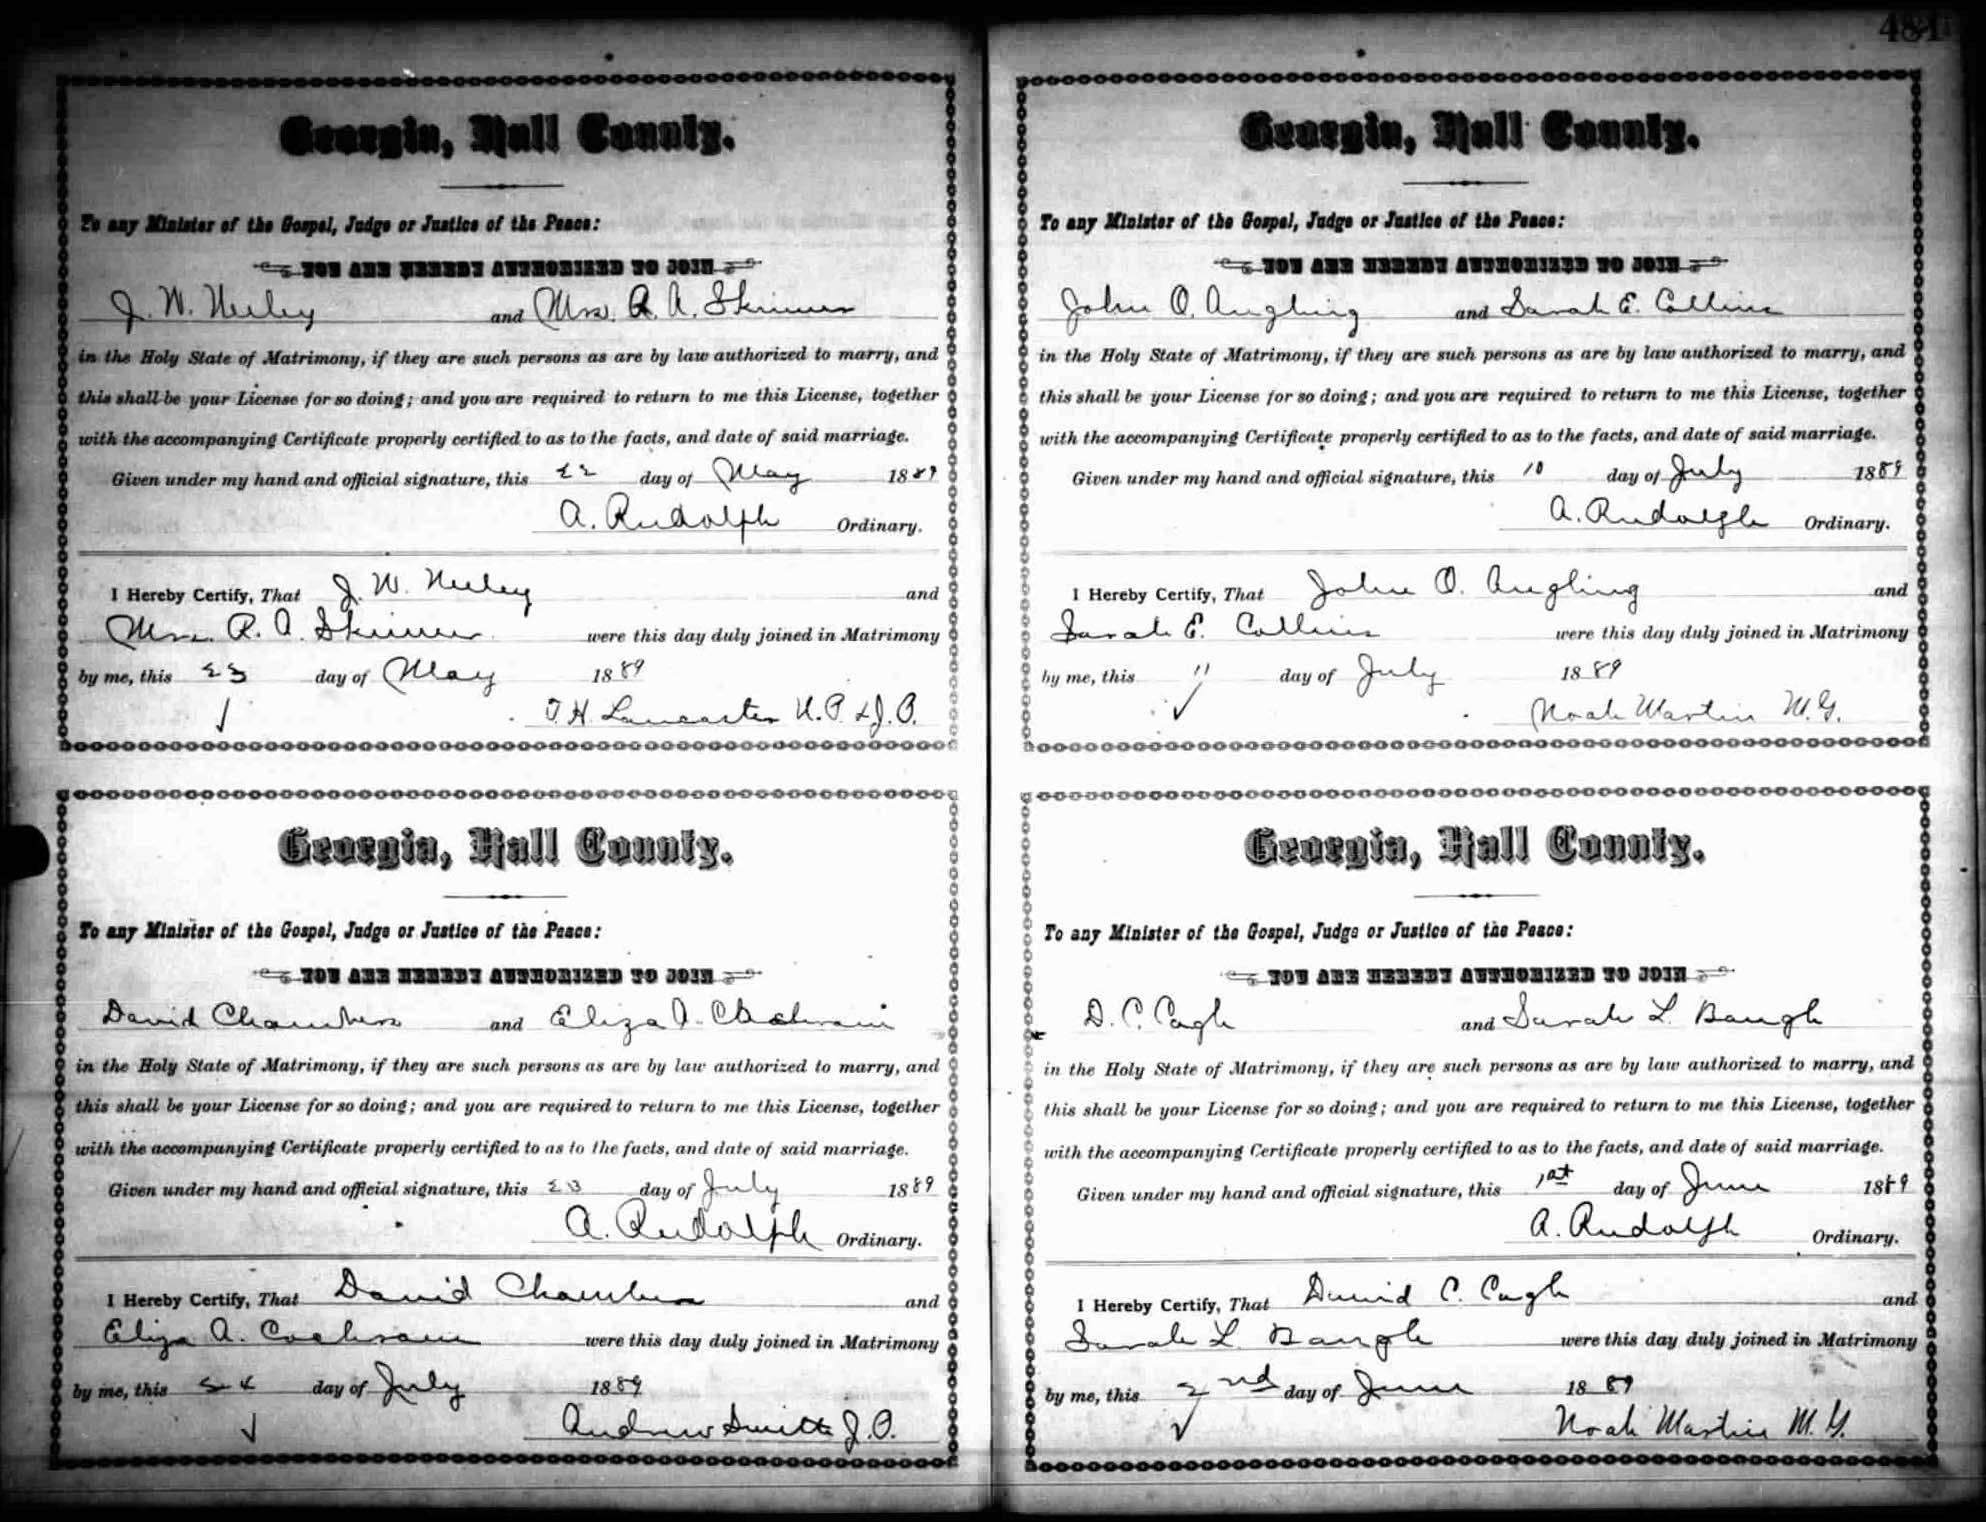 481
Georgia, Hall County.
To any Minister of the Gospel, Judge or Justice of the Peace:
YOU ARE HEREBY AUTHORIZED TO JOIN
J. W. Neeley and Mrs. R. A. Skinner
in the Holy State of Matrimony, if they are such persons as are by law authorized to marry, and
this shall be your License for so doing; and you are required to return to me this License, together
with the accompanying Certificate properly certified to as to the facts, and date of said marriage.
Given under my hand and official signature, this 22 day of May 1889
A. Rudolph Ordinary.
I Hereby Certify, That J. W. Neeley and
Mrs. R. A. Skinner were this day duly joined in Matrimony
by me, this 23 day of May 1889
T. H. Lancaster N. P. & J. P.
Georgia, Hall County.
To any Minister of the Gospel, Judge or Justice of the Peace:
YOU ARE HEREBY AUTHORIZED TO JOIN
David Chambers and Eliza A.
in the Holy State of Matrimony, if they are such persons as are by law authorized to marry, and
this shall be your License for so doing; and you are required to return to me this License, together
with the accompanying Certificate properly certified to as to the facts, and date of said marriage.
Given under my hand and official signature, this 23 day of July 1889
A. Rudolph Ordinary.
I Hereby Certify, That David Chambers and
Eliza A. Cochrain were this day duly joined in Matrimony
by me, this 24 day of July 1889
Andrew Smith J. P.
Georgia, Hall County.
To any Minister of the Gospel, Judge or Justice of the Peace:
YOU ARE HEREBY AUTHORIZED TO JOIN
John O. Angling and Sarah E. Collins
in the Holy State of Matrimony, if they are such persons as are by law authorized to marry, and
this shall be your License for so doing; and you are required to return to me this License, together
with the accompanying Certificate properly certified to as to the facts, and date of said marriage.
Given under my hand and official signature, this 10 day of July 1889
A. Rudolph Ordinary.
I Hereby Certify, That John O. Angling and
Sarah E. Collins were this day duly joined in Matrimony
by me, this 11 day of July 1889
Noah Martin M. G.
Georgia, Hall County.
To any Minister of the Gospel, Judge or Justice of the Peace:
YOU ARE HEREBY AUTHORIZED TO JOIN
D. C. Cagle and Sarah L. Baugh
in the Holy State of Matrimony, if they are such persons as are by law authorized to marry, and
this shall be your License for so doing; and you are required to return to me this License, together
with the accompanying Certificate properly certified to as to the facts, and date of said marriage.
Given under my hand and official signature, this 1st day of June 1889
A. Rudolph Ordinary.
I Hereby Certify, That David C. Cagle and
Sarah L. Baugh were this day duly joined in Matrimony
by me, this 2nd day of June 1889
Noah Martin M. G.